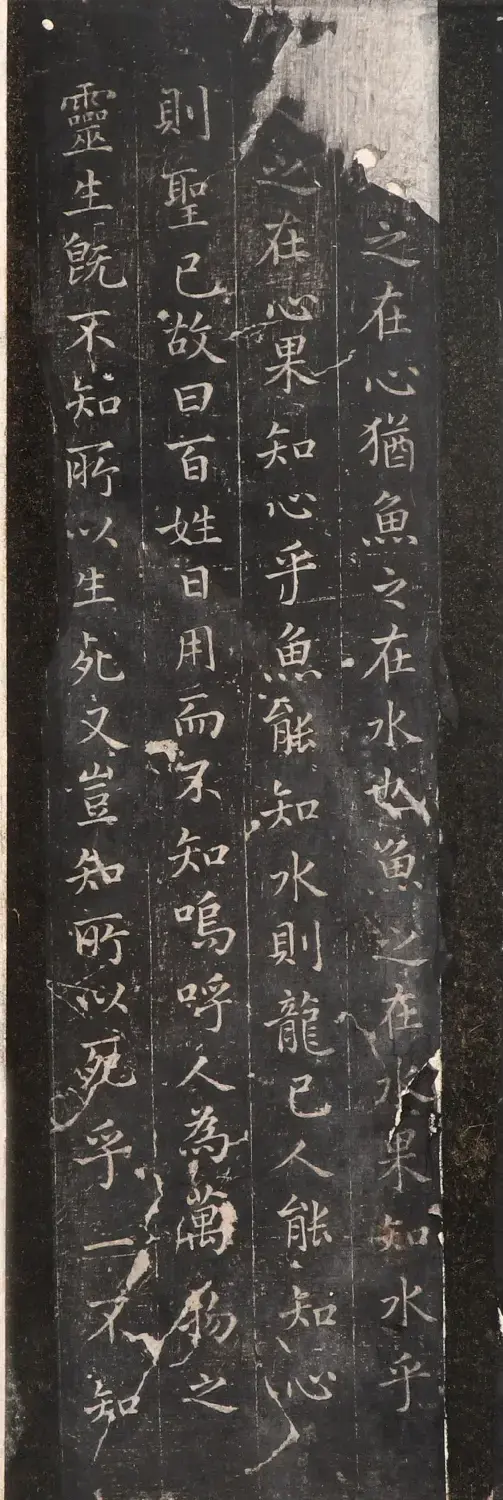 之在心猶魚之在水也魚之在水果知水乎
之在心果知心乎魚能知水則龍已人能知心
則聖已故曰百姓日用而不知嗚呼人為萬物之
靈生既不知所以生死又豈知所以死乎一不知